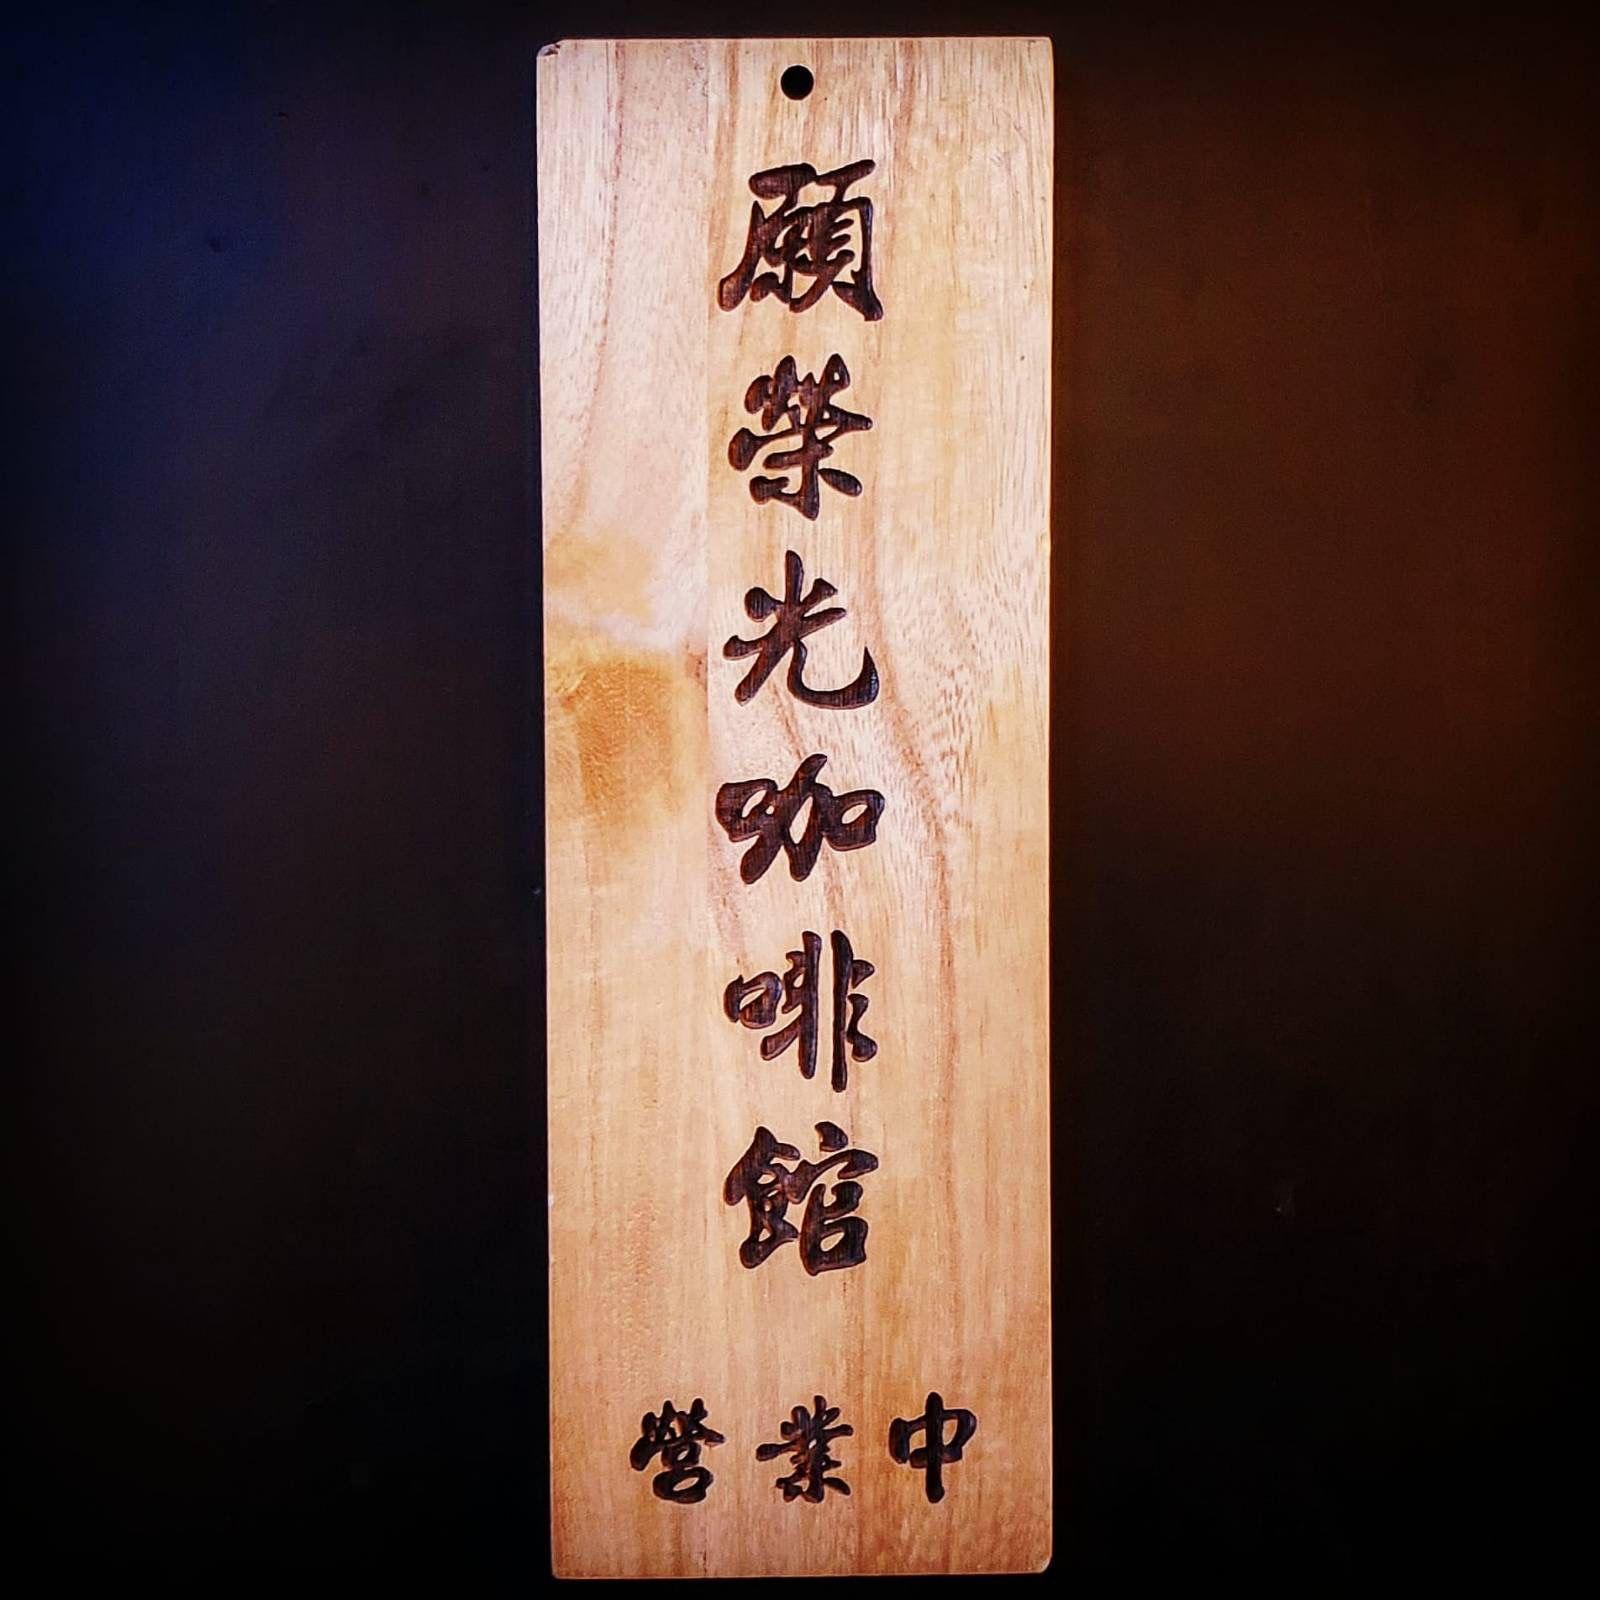 願榮光咖啡館
營業中